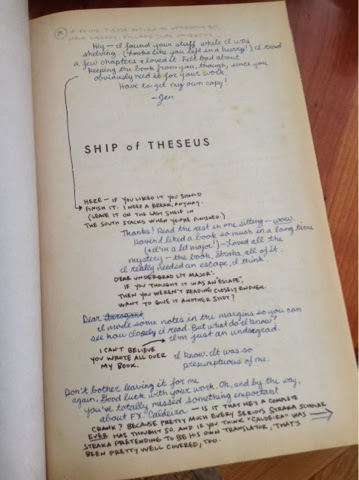 IF FOUND, PLEASE RETURN TO WORKROOM B19,
MAIN LIBRARY, POLLARD STATE UNIVERSITY
Hey—I found your stuff while I was
shelving. (Looks like you left in a hurry!) I read
a few chapters + loved it. Felt bad about
keeping the book from you, though, since you
obviously need it for your work.
Have to get my own copy!
—Jen
SHIP of THESEUS
HERE – IF YOU LIKED IT YOU SHOULD
FINISH IT. I NEED A BREAK, ANYWAY.
(LEAVE IT ON THE LAST SHELF IN
THE SOUTH STACKS WHEN YOU'RE FINISHED.)
Thanks! Read the rest in one sitting—wow.
Haven't liked a book so much in a long time
(+ I'm a lit major!)—loved all the
mystery—the book, Straka, all of it.
I really needed an escape, I think.
DEAR UNDERGRAD LIT MAJOR:
IF YOU THOUGHT IT WAS AN "ESCAPE,"
THEN YOU WEREN'T READING CLOSELY ENOUGH.
WANT TO GIVE IT ANOTHER SHOT?
Dear
I made some notes in the margins so you can
see how closely I read. But what do I know?
I'm just an undergrad.
I CAN'T BELIEVE
YOU WROTE ALL OVER
MY BOOK.
I know. It was so
presumptuous of me.
Don't bother leaving it for me
again. Good luck with your work. Oh, and by the way,
you've totally missed something important
about FX. Caldeira.
— IS IT THAT HE'S A COMPLETE
CRANK? BECAUSE PRETTY MUCH EVERY SERIOUS STRAKA SCHOLAR
EVER HAS THOUGHT SO. AND IF YOU THINK "CALDEIRA" WAS
STRAKA PRETENDING TO BE HIS OWN TRANSLATOR, THAT'S
BEEN PRETTY WELL COVERED, TOO.